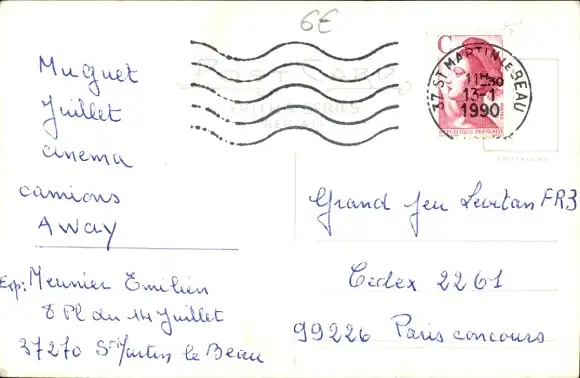 6€
C
37 ST MARTIN-LE-BEAU
11H30
13-1
1990
REPUBLIQUE FRANÇAISE
POST CARD
COPYRIGHT
Muguet
Juillet
cinema
camions
AWAY
Exp: Meunier Emilien
8 Pl du 14 Juillet
37270 St Martin le Beau
Grand jeu Levitan FR3
Cedex 2261
99226 Paris concours